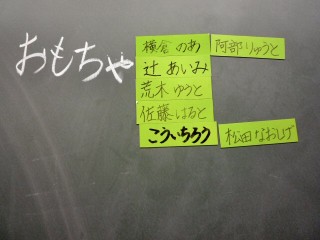 おもちゃ
横倉 のあ
阿部 りゅうと
辻 あいみ
荒木 ゆうと
佐藤 はると
こういちろう
松田 なおしげ